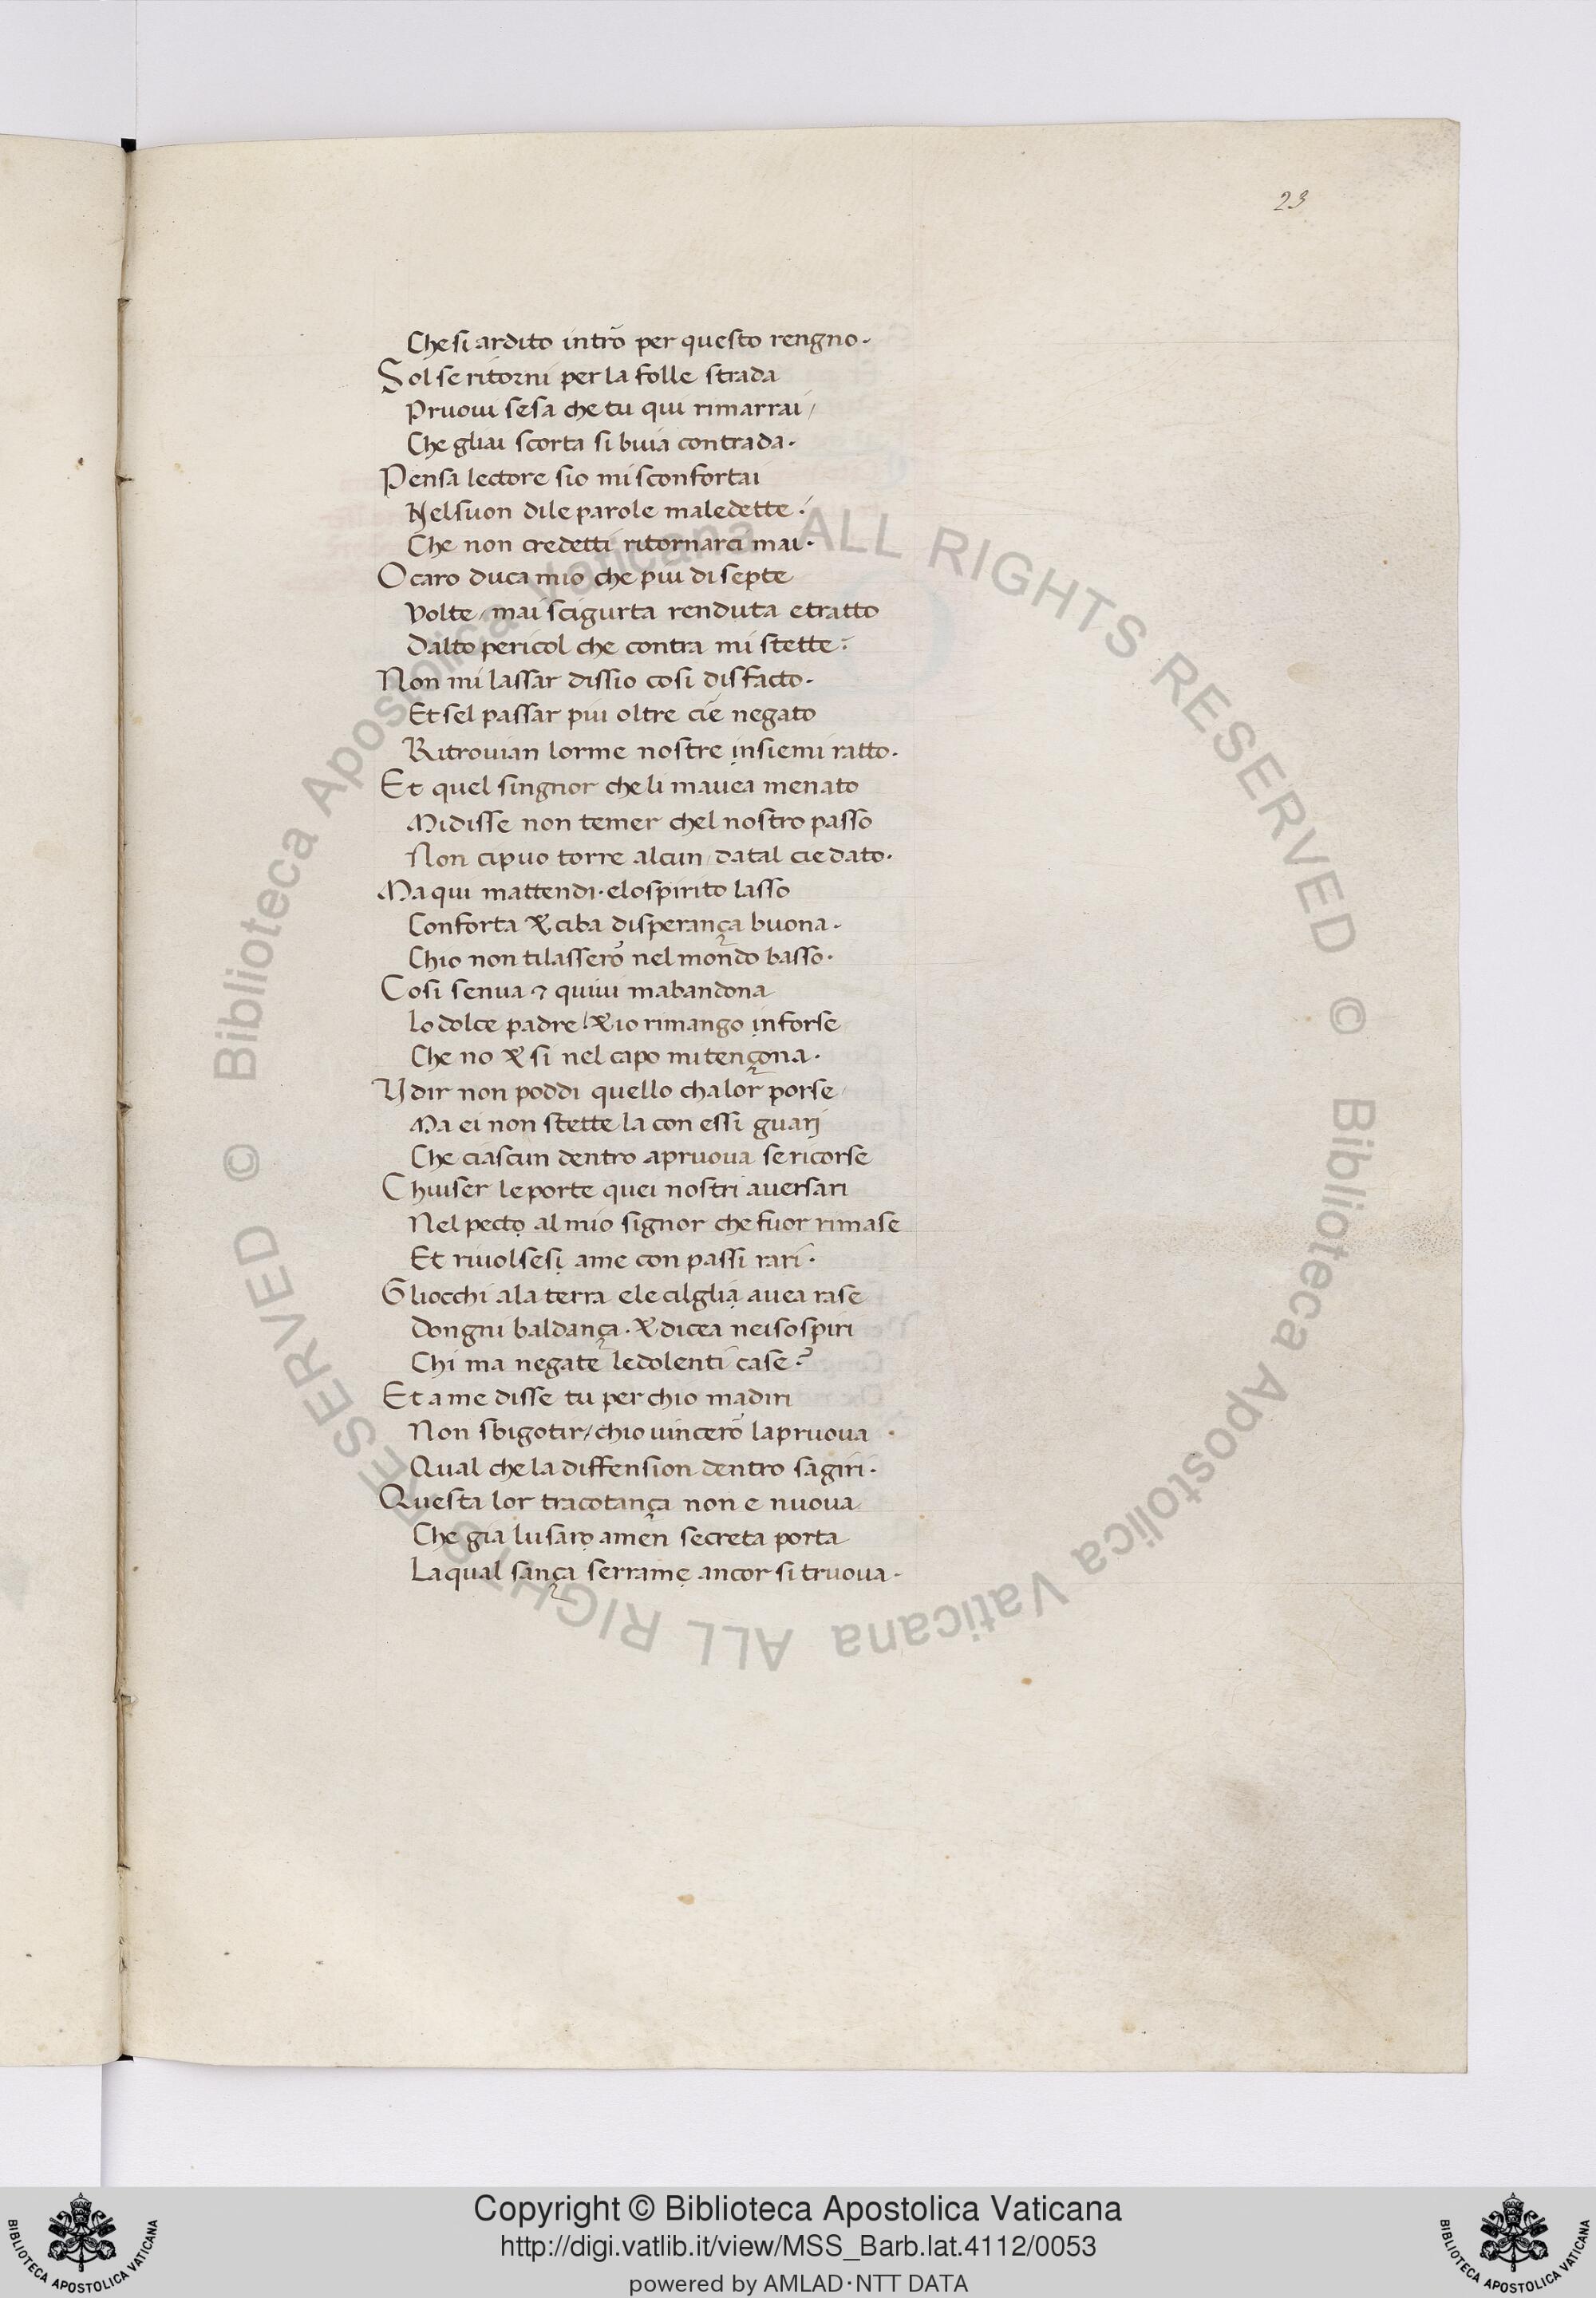 23
Che si ardito intrò per questo rengno.
Sol se ritorni per la folle strada
Pruoui se sa che tu qui rimarrai/
Che gliai scorta si buia contrada.
Pensa lectore sio mi sconfortai
Nel suon di le parole maledette.
Che non credetti ritornarci mai.
O caro duca mio che piu di septe
Volte/ mai scigurta renduta e tratto
Dalto pericol che contra mi stette.
Non mi lassar dissio cosi disfacto.
Et sel passar piu oltre cie negato
Ritrouian lorme nostre insiemi ratto.
Et quel singnor che li mauea menato
Mi disse non temer chel nostro passo
Non ci puo torre alcun/ da tal cie dato.
Ma qui mattendi. e lo spirito lasso
Conforta & ciba di sperança buona.
Chio non ti lasserò nel mondo basso.
Cosi sen ua ⁊ quiui mabandona
Lo dolce padre/ & io rimango in forse
Che no & si nel capo mi tençona.
Udir non poddi quello cha lor porse/
Ma ei non stette la con essi guarj
Che ciascun dentro a pruoua se ricorse
Chiuser le porte quei nostri auersari
Nel pecto al mio signor che fuor rimase
Et riuolsesi a me con passi rari.
Gliocchi a la terra e le cilglia auea rase
Dongni baldança. & dicea nei sospiri
Chi ma negate le dolenti case?
Et a me disse tu per chio madiri
Non sbigotir/ chio uincerò la pruoua.
Qual che la diffension dentro sagiri.
Questa lor tracotança non e nuoua
Che gia lusaro a men secreta porta
La qual sança serrame ancor si truoua.
© Biblioteca Apostolica Vaticana ALL RIGHTS RESERVED
© Biblioteca Apostolica Vaticana ALL RIGHTS RESERVED
Copyright © Biblioteca Apostolica Vaticana
http://digi.vatlib.it/view/MSS_Barb.lat.4112/0053
powered by AMLAD·NTT DATA
BIBLIOTECA APOSTOLICA VATICANA
BIBLIOTECA APOSTOLICA VATICANA